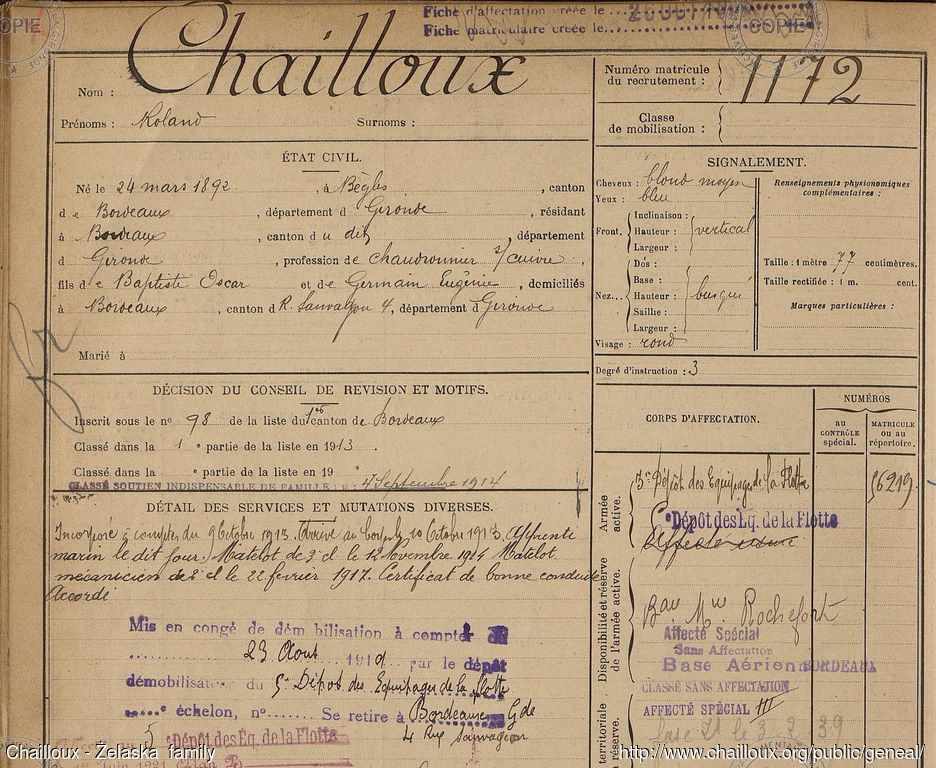 Fiche d'affectation créée le
Fiche matriculaire créée le
COPIE
COPIE
Nom : Chailloux
Prénoms : Roland Surnoms :
Numéro matricule du recrutement : 1172
Classe de mobilisation :
ÉTAT CIVIL.
Né le 24 mars 1892, à Bègles, canton
de Bordeaux, département d Gironde, résidant
à Bordeaux, canton du dit, département
d Gironde, profession de chaudronnier s/cuivre,
fils de Baptiste Oscar et de Germain Eugénie, domiciliés
à Bordeaux, canton d R. Sauvageon 4, département d Gironde
Marié à
SIGNALEMENT.
Cheveux : blond moyen
Yeux : bleu
Front. Inclinaison :
Hauteur : vertical
Largeur :
Nez... Dos :
Base :
Hauteur : busqué
Saillie :
Largeur :
Visage : rond
Renseignements physionomiques complémentaires :
Taille : 1 mètre 77 centimètres.
Taille rectifiée : 1 m. cent.
Marques particulières :
Degré d'instruction : 3
DÉCISION DU CONSEIL DE REVISION ET MOTIFS.
Inscrit sous le n° 98 de la liste du 1er canton de Bordeaux
Classé dans la 1e partie de la liste en 1913.
Classé dans la e partie de la liste en 19
CLASSÉ SOUTIEN INDISPENSABLE DE FAMILLE LE : 7 Septembre 1914
DÉTAIL DES SERVICES ET MUTATIONS DIVERSES.
Incorporé à compter du 9 Octobre 1913. Arrivé au corps le 10 Octobre 1913. Apprenti
marin le dit jour. Matelot de 3e cl le 12 Novembre 1914 Matelot
mécanicien de 2e cl le 22 fevrier 1917. Certificat de bonne conduite
Accordé
Mis en congé de dém bilisation à compter du
23 Aout 1919 par le dépôt
démobilisateur du 5e Dépôt des Equipages de la flotte
échelon, n° Se retire à Bordeaux Gde
4 Rue Sauvageon
5 e Dépôt des Eq. de la Flotte
CORPS D'AFFECTATION.
NUMÉROS
au CONTRÔLE spécial.
MATRICULE ou au répertoire.
Armée active.
3e Dépôt des Equipages de la Flotte
e Dépôt des Eq. de la Flotte
Disponibilité et réserve de l'armée active.
Bau Mme Rochefort
Affecté Spécial
Sans Affectation
Base Aérienne BORDEAUX
CLASSÉ SANS AFFECTATION
AFFECTÉ SPÉCIAL III
territoriale
réserve.
Chailloux - Želaska family
http://www.chailloux.org/public/geneal/